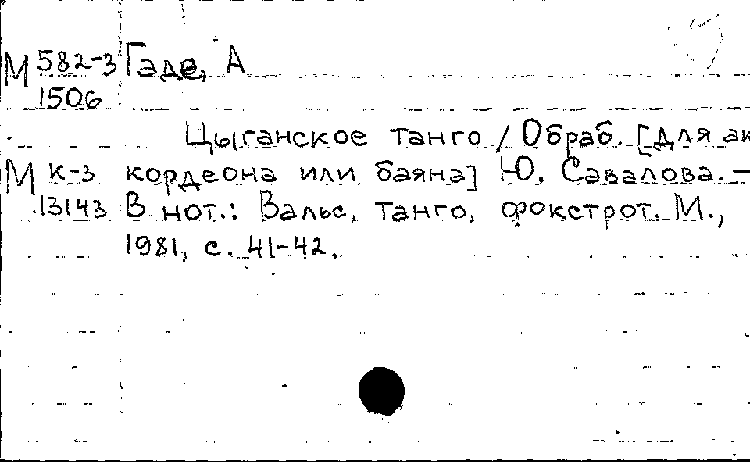 М 582-3 Гаде, А
1506
Цыганское танго / Обраб. [для ак
М К-3 кордеона или баяна] Ю. Савалова. —
13143 В нот.: Вальс, танго, фокстрот. М.,
1981, с. 41-42.